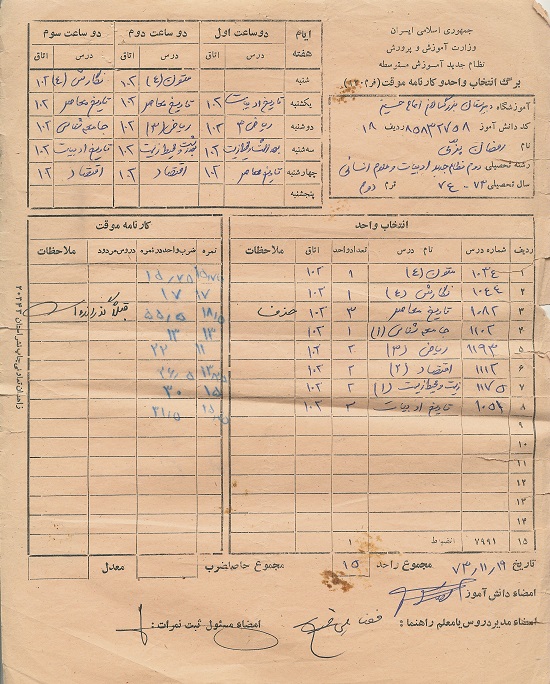 جمهوری اسلامی ایران
وزارت آموزش و پرورش
نظام جدید آموزش متوسطه
برگ انتخاب واحد و کارنامه موقت (فرم ۲۰۱)
آموزشگاه دبیرستان بزرگسالان امام خمینی
کد دانش آموز ۸۵۸۳۲۷۵۸ ردیف ۱۸
نام رمضان
رشته تحصیلی دوم نظام جدید ادبیات و علوم انسانی
سال تحصیلی ۷۳-۷۴ ترم دوم
ایام هفته دو ساعت اول دو ساعت دوم دو ساعت سوم
درس اتاق درس اتاق درس اتاق
شنبه متون (۴) ۱۰۲ نگارش (۴) ۱۰۲
یکشنبه تاریخ ادبیات ۱۰۲ تاریخ معاصر ۱۰۲ تاریخ معاصر ۱۰۲
دوشنبه ریاضی ۳ ۱۰۲ ریاضی (۳) ۱۰۲ جامعه شناسی ۱۰۲
سه شنبه ۱۰۲ ۱۰۲ تاریخ ادبیات ۱۰۲
چهارشنبه تاریخ معاصر ۱۰۲ اقتصاد ۱۰۲ اقتصاد ۱۰۲
پنجشنبه
انتخاب واحد
ردیف شماره درس نام درس تعداد واحد اتاق ملاحظات
۱ ۱۰۳۴ متون (۴) ۱ ۱۰۲
۲ ۱۰۴۴ نگارش (۴) ۱ ۱۰۲
۳ ۱۰۸۲ تاریخ معاصر ۳ ۱۰۲ حذف
۴ ۱۱۰۲ جامعه شناسی (۱) ۱ ۱۰۲
۵ ۱۱۹۳ ریاضی (۳) ۲ ۱۰۲
۶ ۱۱۱۲ اقتصاد (۲) ۲ ۱۰۲
۷ ۱۱۷۵ زیست و محیط زیست (۱) ۲ ۱۰۲
۸ ۱۰۵۴ تاریخ ادبیات ۲ ۱۰۲
۹
۱۰
۱۱
۱۲
۱۳
۱۴
۱۵ ۷۹۹۱ انضباط ۱
کارنامه موقت
نمره ضرب واحد در نمره دروس مردود ملاحظات
۱۵/۷۵ ۱۵/۷۵
۱۷ ۱۷
۱۸/۵ ۵۵/۵
۱۳ ۱۳
۱۱ ۲۲
۱۵ ۳۰
تاریخ ۷۳/۱۱/۱۹ مجموع واحد ۱۵ مجموع حاصلضرب معدل
امضاء دانش آموز
امضاء مدیر دروس یا معلم راهنما : امضاء مسئول ثبت نمرات :